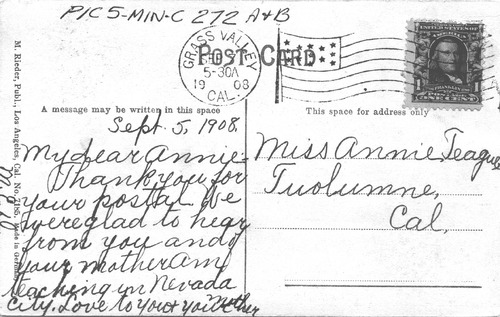 PIC 5-MIN-C 272 A&B
GRASS VALLEY
SEP 5
5-30A
1908
CAL.
POST CARD
UNITED STATES OF AMERICA
FRANKLIN
1 ONE CENT 1
A message may be written in this space
This space for address only
M. Rieder, Publ., Los Angeles, Cal. No. 7185. Made in Germany
Sept. 5, 1908.
My dear Annie:
Thank you for
your postal. We
were glad to hear
from you and
your mother Am
teaching in Nevada
City. Love to you & your Mother
Miss Annie Teague
Tuolumne,
Cal.